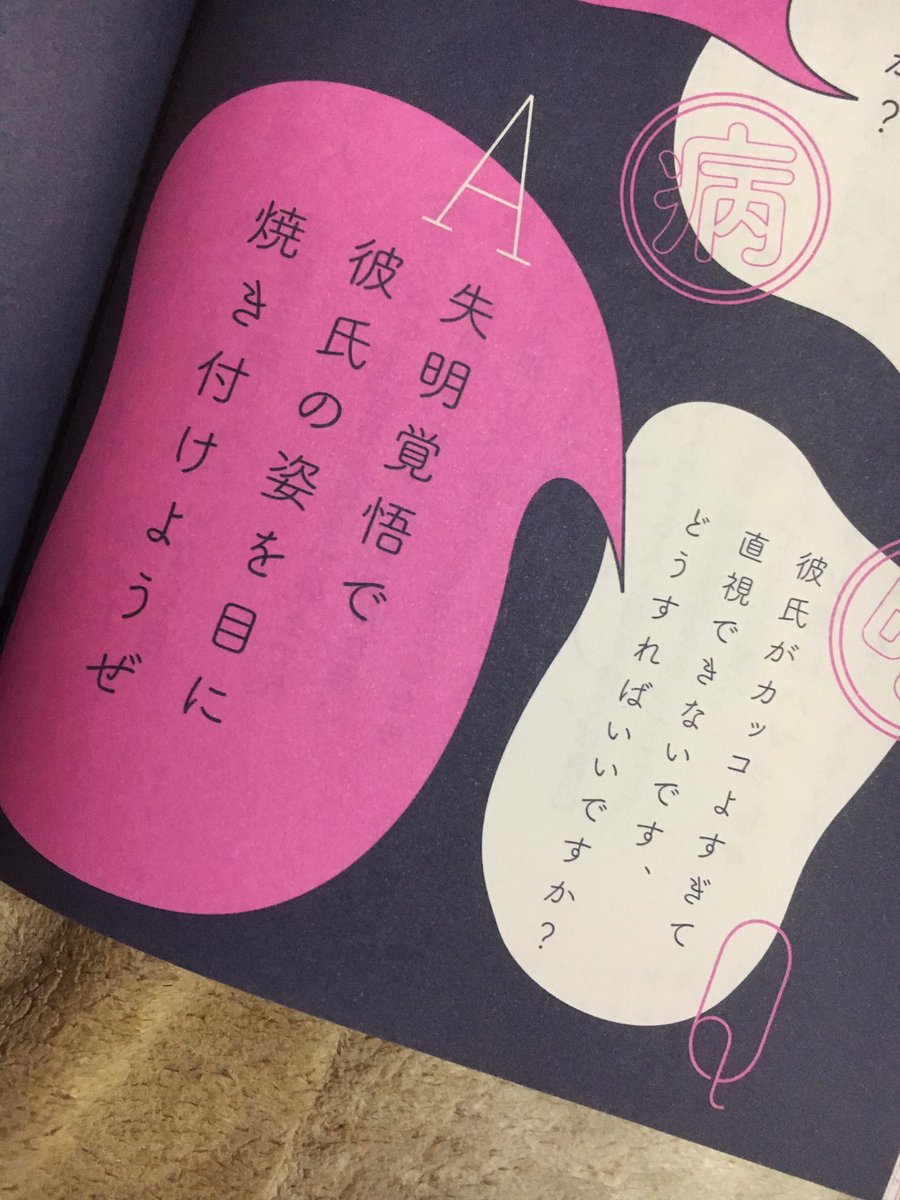 か?
病
Q
彼氏がカッコよすぎて
直視できないです、
どうすればいいですか?
A
失明覚悟で
彼氏の姿を目に
焼き付けようぜ